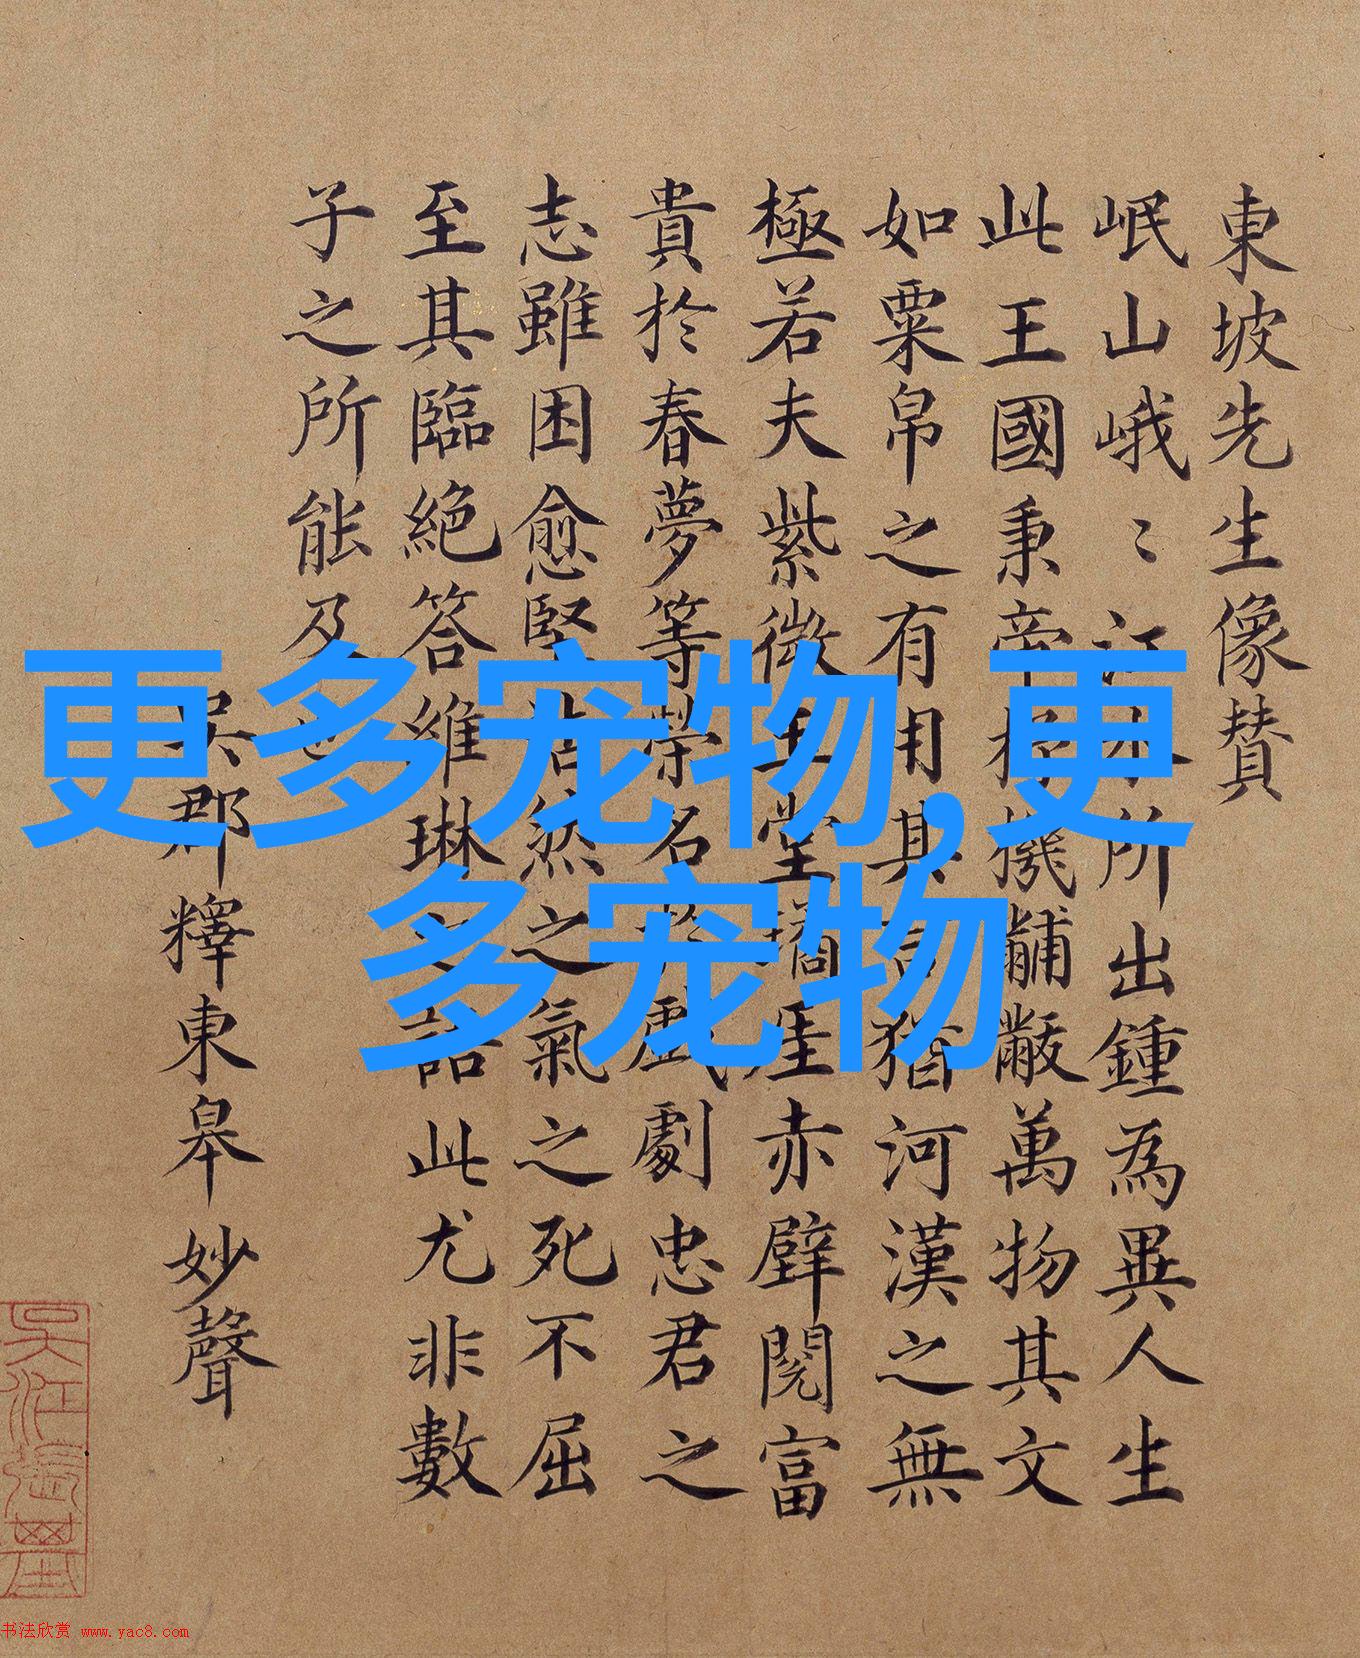 東坡先生像贊
岷山峨〻江水所出鍾為異人生
此王國秉帝杼機黼黻萬物其文
如粟帛之有用其言猶河漢之無
極若夫紫微玉堂崖赤壁閱富
貴於春夢等榮名於戲劇忠君之
志雖困愈堅浩然之氣之死不屈
至其臨絕答維琳之語此尤非數
子之所能及也
吳郡釋東皋妙聲
更多宠物,更
多宠物
书法欣赏 www.yac8.com